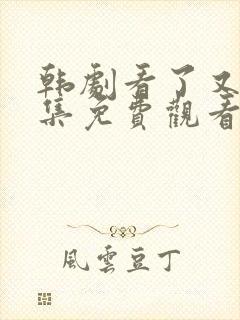 韩劇看了又
集免費觀看
風雲豆丁